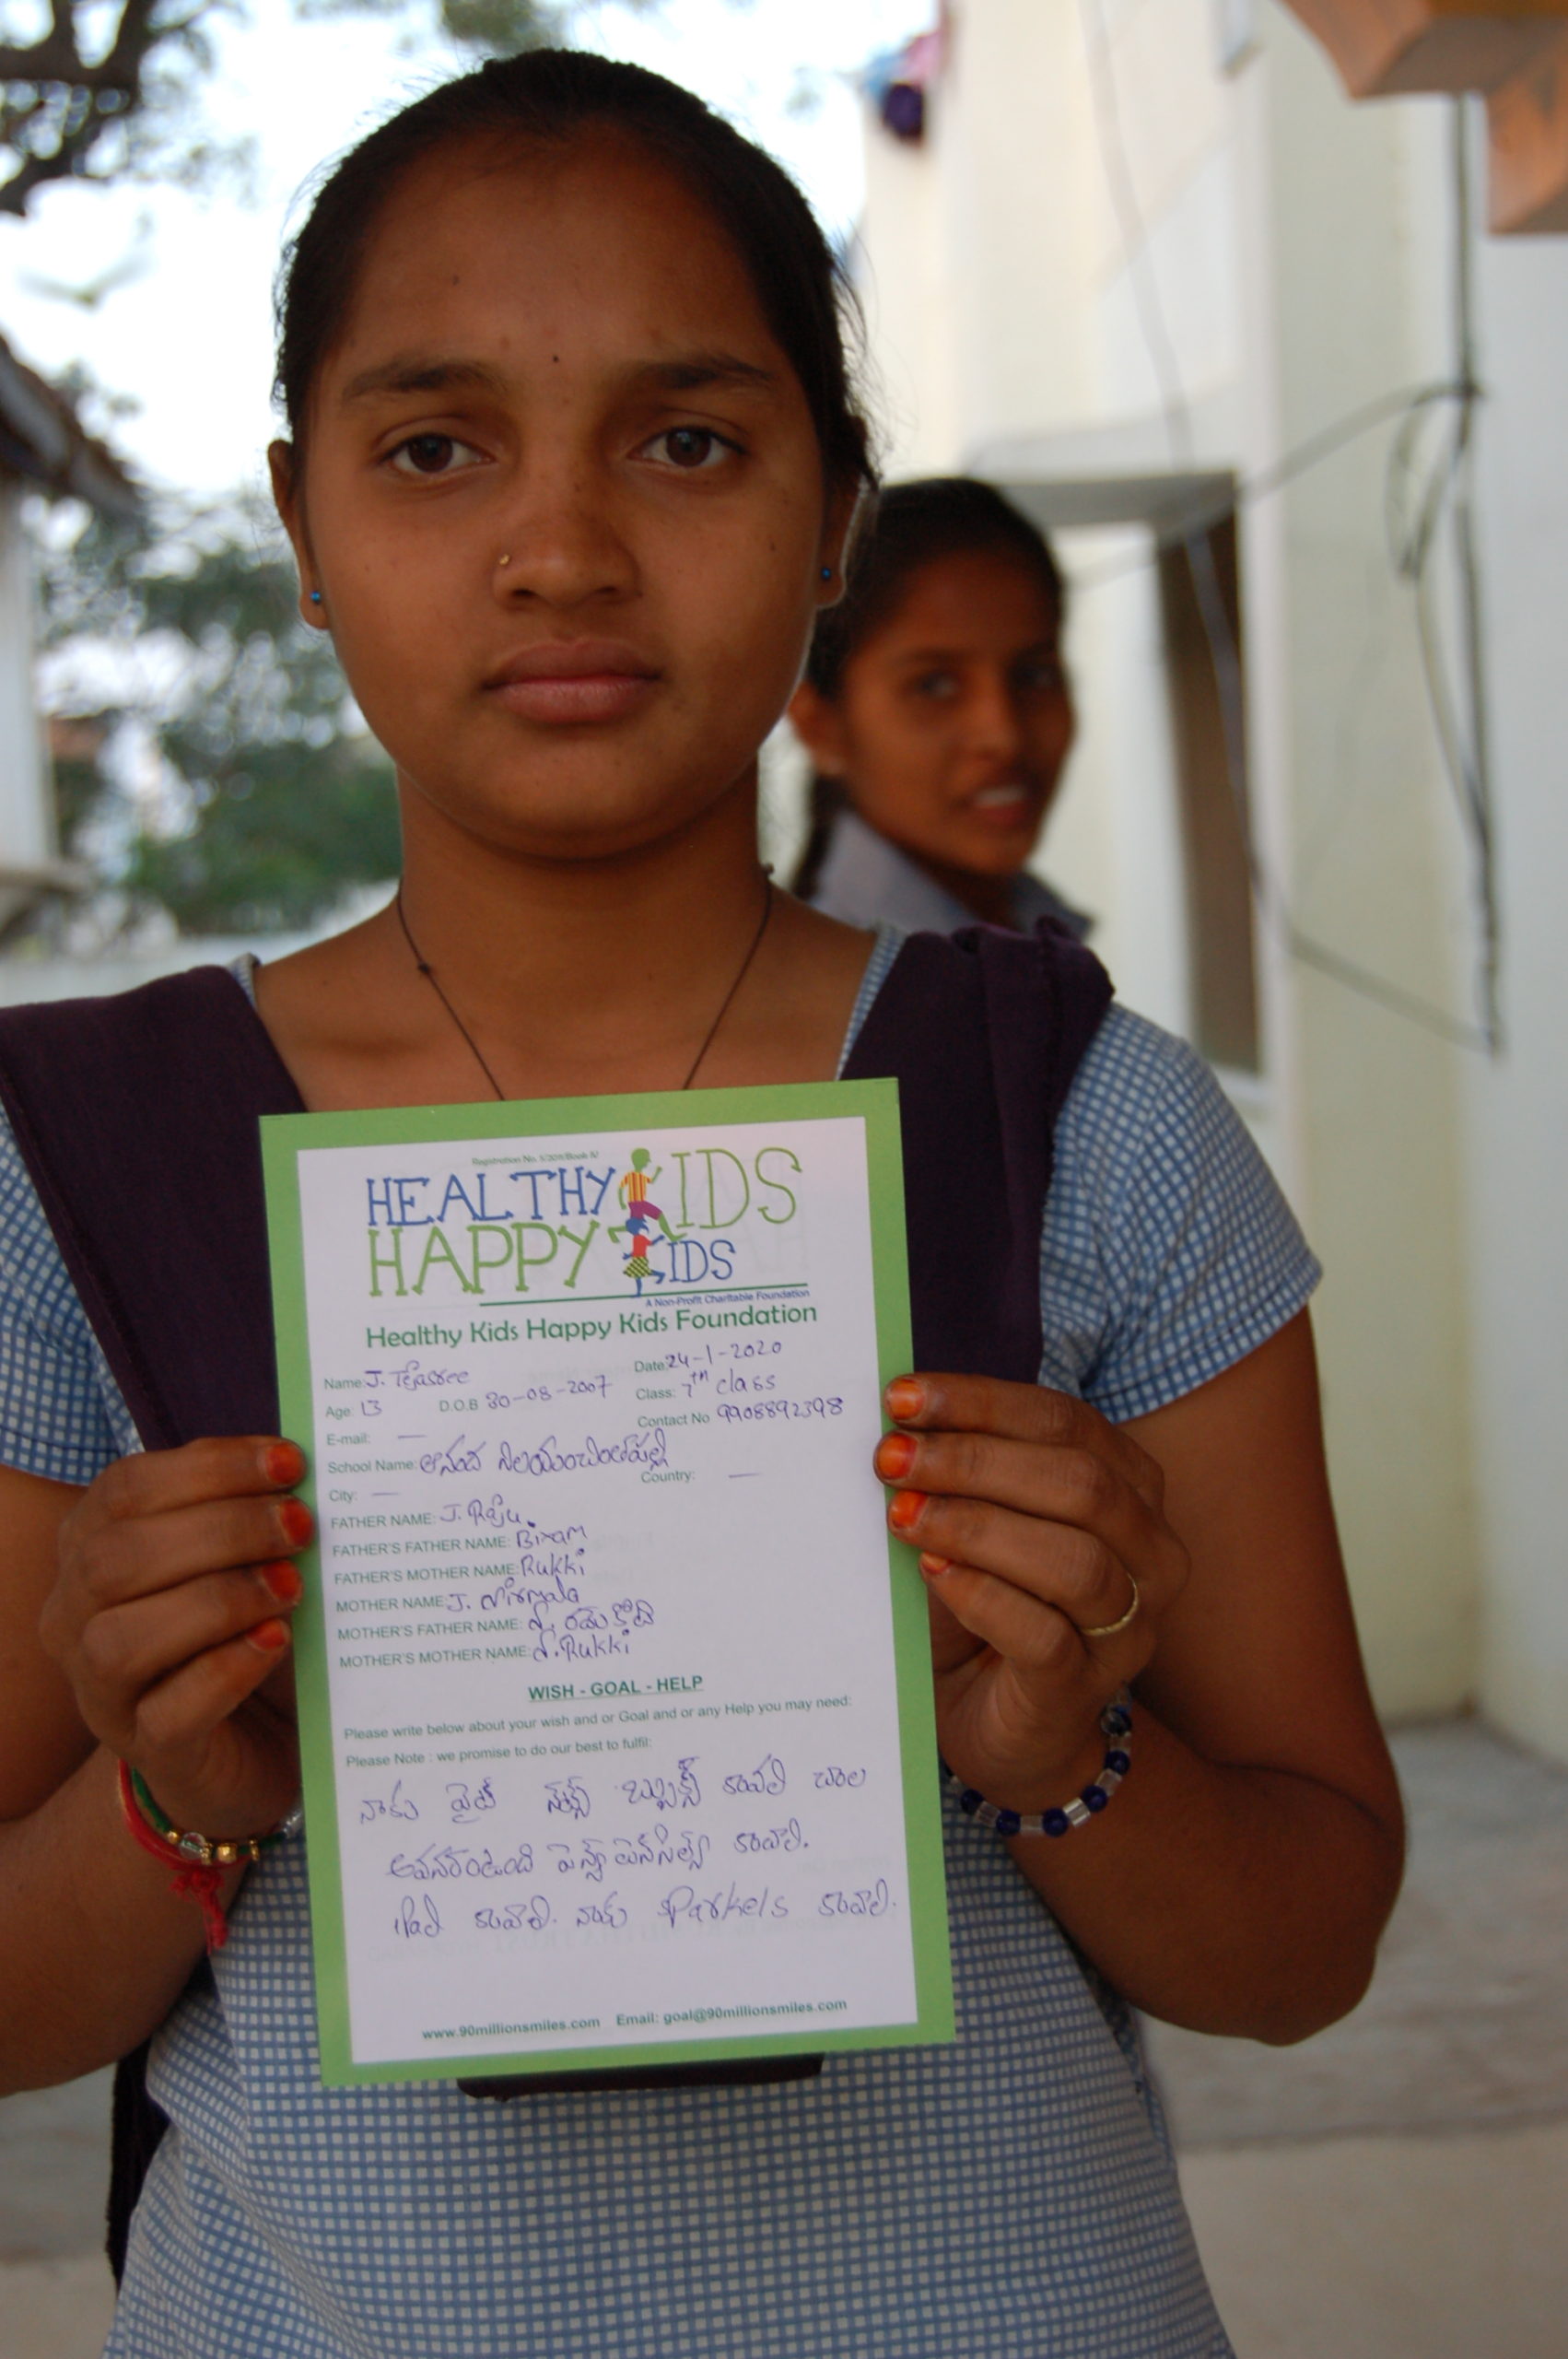 HEALTHY KIDS
HAPPY KIDS
A Non-Profit Charitable Foundation
Healthy Kids Happy Kids Foundation
Name: J. Tejasree Date: 24-1-2020
Age: 13 D.O.B 30-08-2007 Class: 7th class
E-mail: — Contact No 9908892398
School Name: ఆనంద నిలయం
City: — Country: —
FATHER NAME: J. Raju.
FATHER'S FATHER NAME: Bixam
FATHER'S MOTHER NAME: Rukki
MOTHER NAME: J. Nirmala
MOTHER'S FATHER NAME:
MOTHER'S MOTHER NAME: Rukki
WISH - GOAL - HELP
Please write below about your wish and or Goal and or any Help you may need:
Please Note : we promise to do our best to fulfil:
నాకు వైట్ కావలి చాల
పెన్స్ పెన్సిల్స్ కావాలి.
iPad కావాలి. నాకు Sparkels కావాలి.
www.90millionsmiles.com Email: goal@90millionsmiles.com